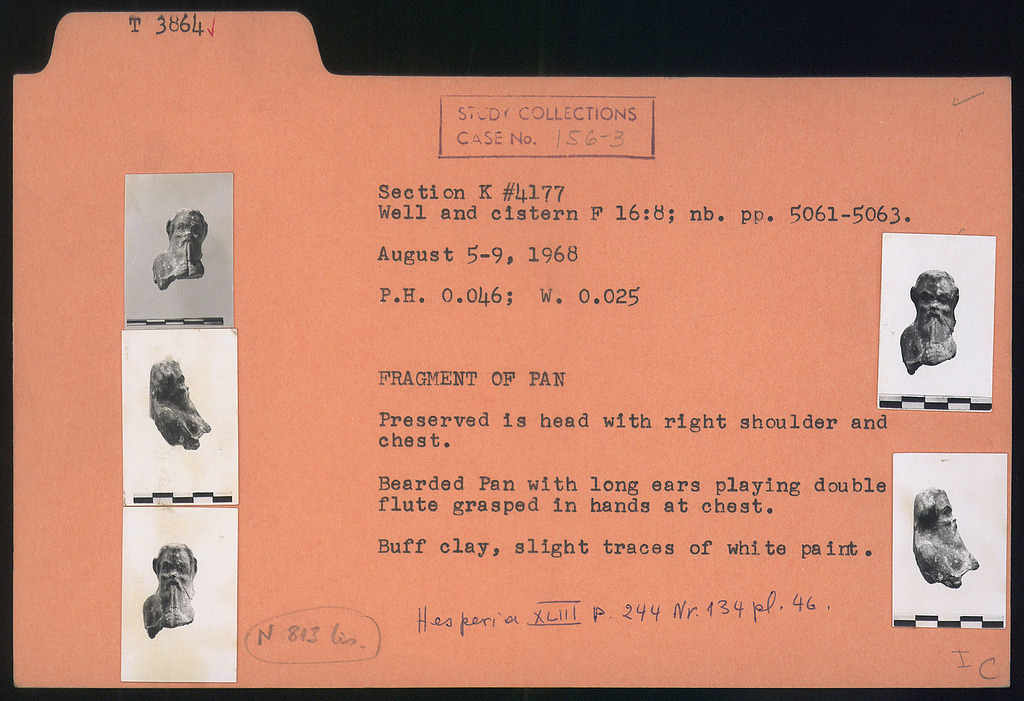 T 3864✓
STUDY COLLECTIONS
CASE No. 156-3
Section K #4177
Well and cistern F 16:8; nb. pp. 5061-5063.
August 5-9, 1968
P.H. 0.046; W. 0.025
FRAGMENT OF PAN
Preserved is head with right shoulder and
chest.
Bearded Pan with long ears playing double
flute grasped in hands at chest.
Buff clay, slight traces of white paint.
Hesperia XLIII p. 244 Nr. 134 pl. 46.
N 813 bis.
I C